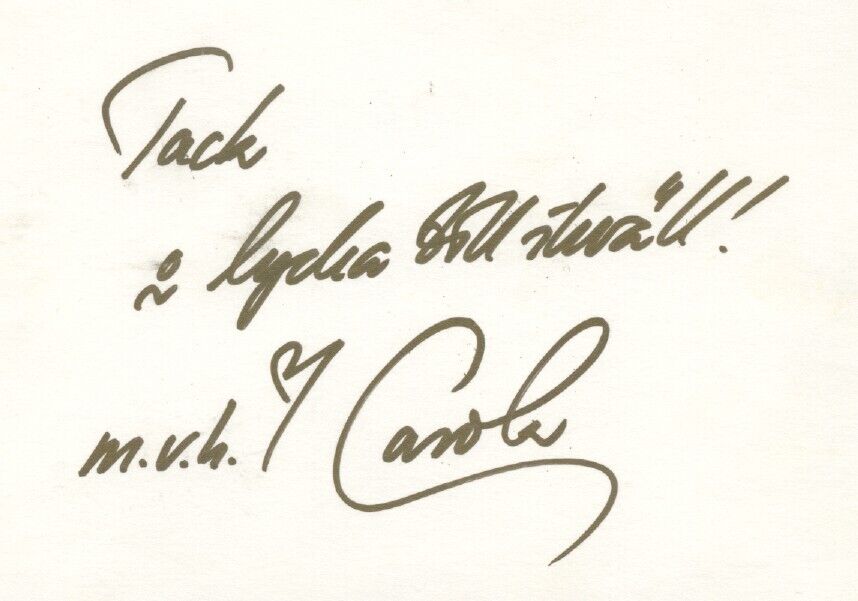 Tack
å lycka till ikväll!
m.v.h. Carola